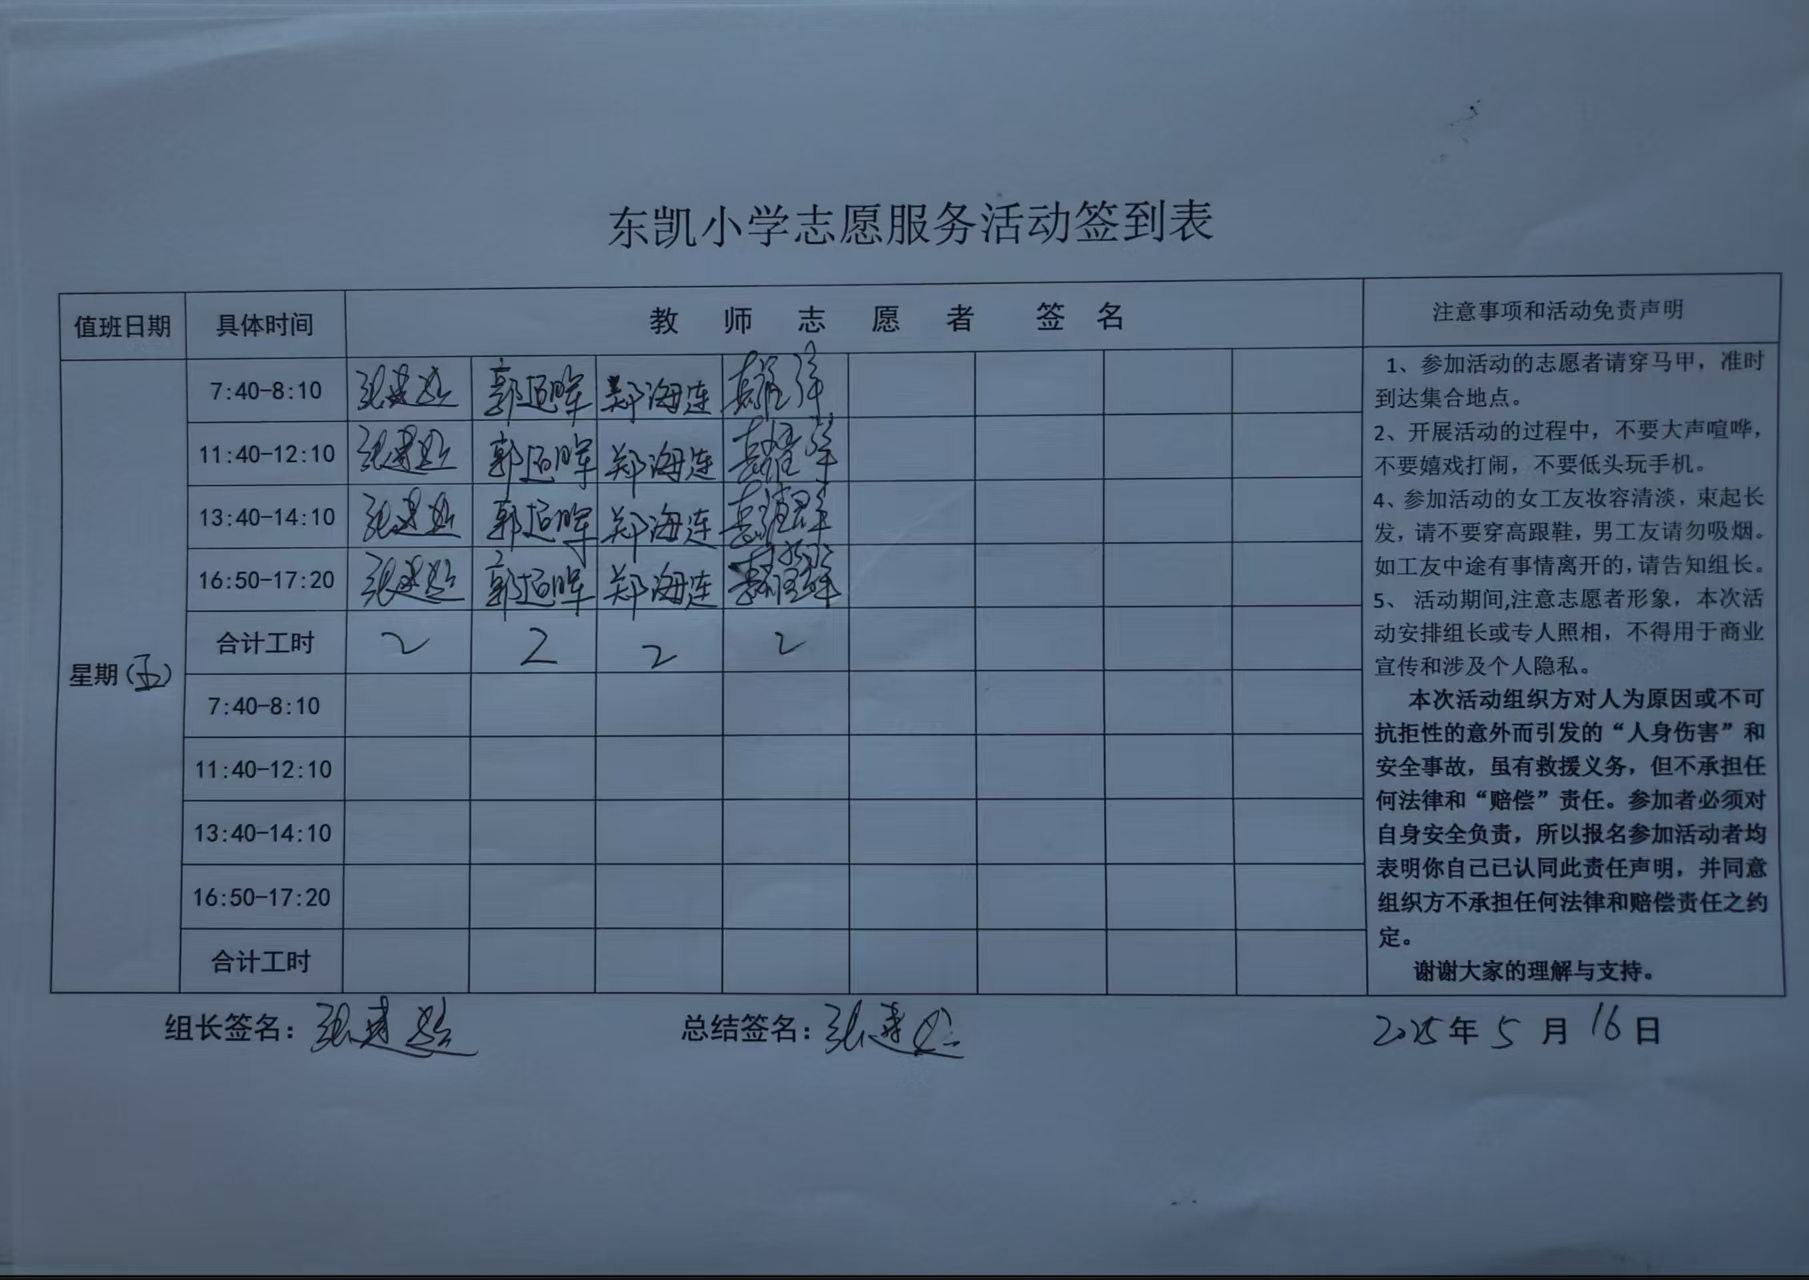 东凯小学志愿服务活动签到表
值班日期 具体时间 教 师 志 愿 者 签 名 注意事项和活动免责声明
星期(五)
7:40-8:10 张建 郭 郑海连
11:40-12:10 张建 郭 郑海连
13:40-14:10 张建 郭 郑海连
16:50-17:20 张建 郭 郑海连
合计工时 2 2 2 2
7:40-8:10
11:40-12:10
13:40-14:10
16:50-17:20
合计工时
1、参加活动的志愿者请穿马甲，准时
到达集合地点。
2、开展活动的过程中，不要大声喧哗，
不要嬉戏打闹，不要低头玩手机。
4、参加活动的女工友妆容清淡，束起长
发，请不要穿高跟鞋，男工友请勿吸烟。
如工友中途有事情离开的，请告知组长。
5、 活动期间,注意志愿者形象，本次活
动安排组长或专人照相，不得用于商业
宣传和涉及个人隐私。
本次活动组织方对人为原因或不可
抗拒性的意外而引发的“人身伤害”和
安全事故，虽有救援义务，但不承担任
何法律和“赔偿”责任。参加者必须对
自身安全负责，所以报名参加活动者均
表明你自己已认同此责任声明，并同意
组织方不承担任何法律和赔偿责任之约
定。
谢谢大家的理解与支持。
组长签名：张建 总结签名：张建 2025年5月16日